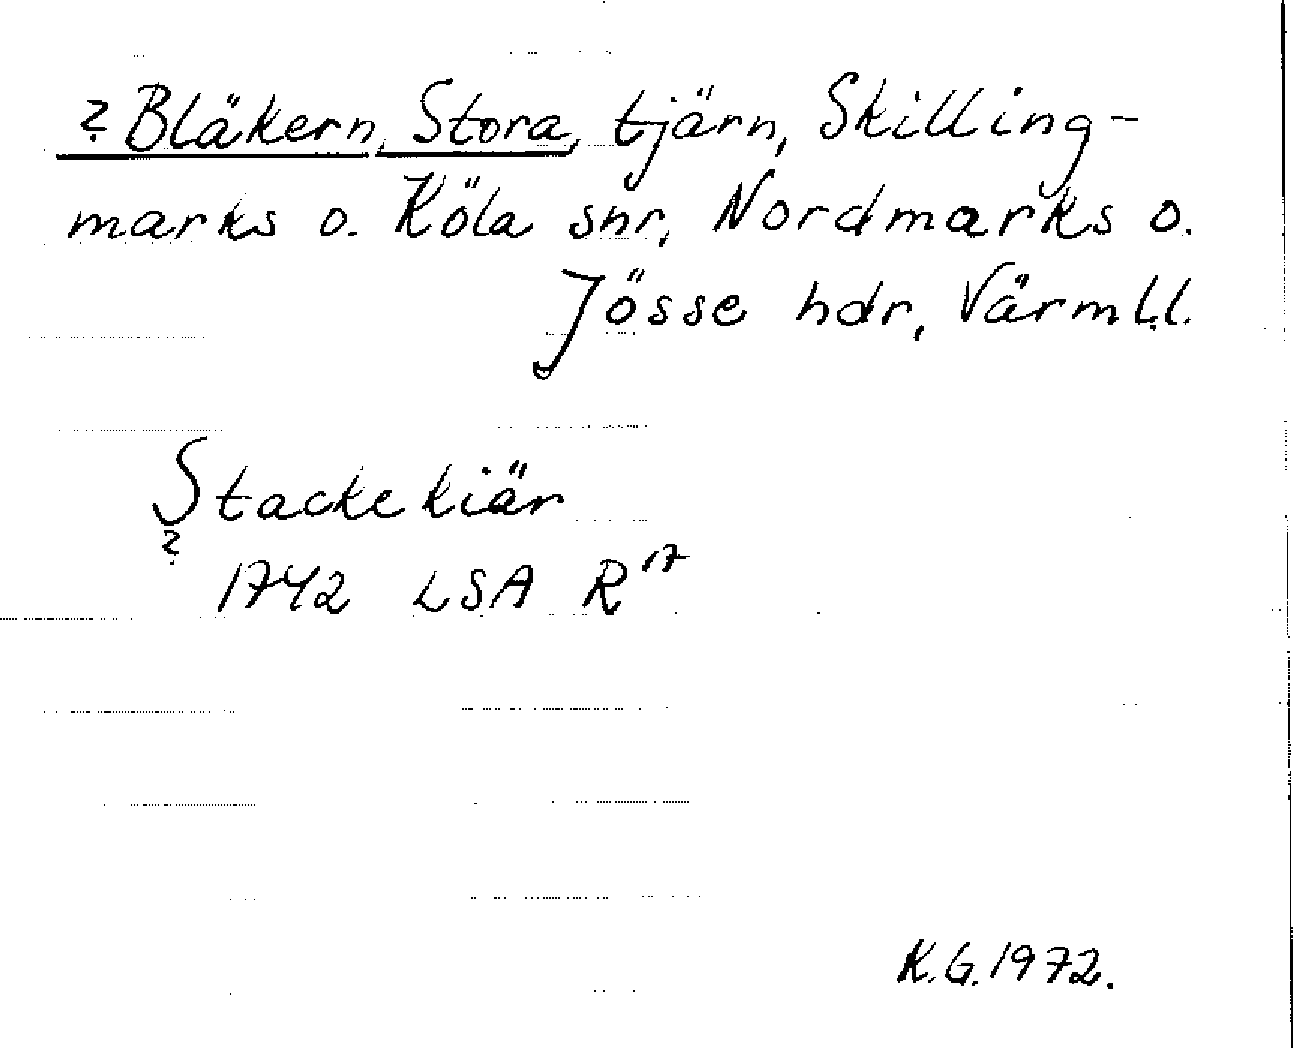 ? Bläkern, Stora, tjärn, Skilling-
marks o. Köla snr, Nordmarks o.
Jösse hdr, Värml.l.
Stackekiär
?
1742 LSA R 17
K.G. 1972.